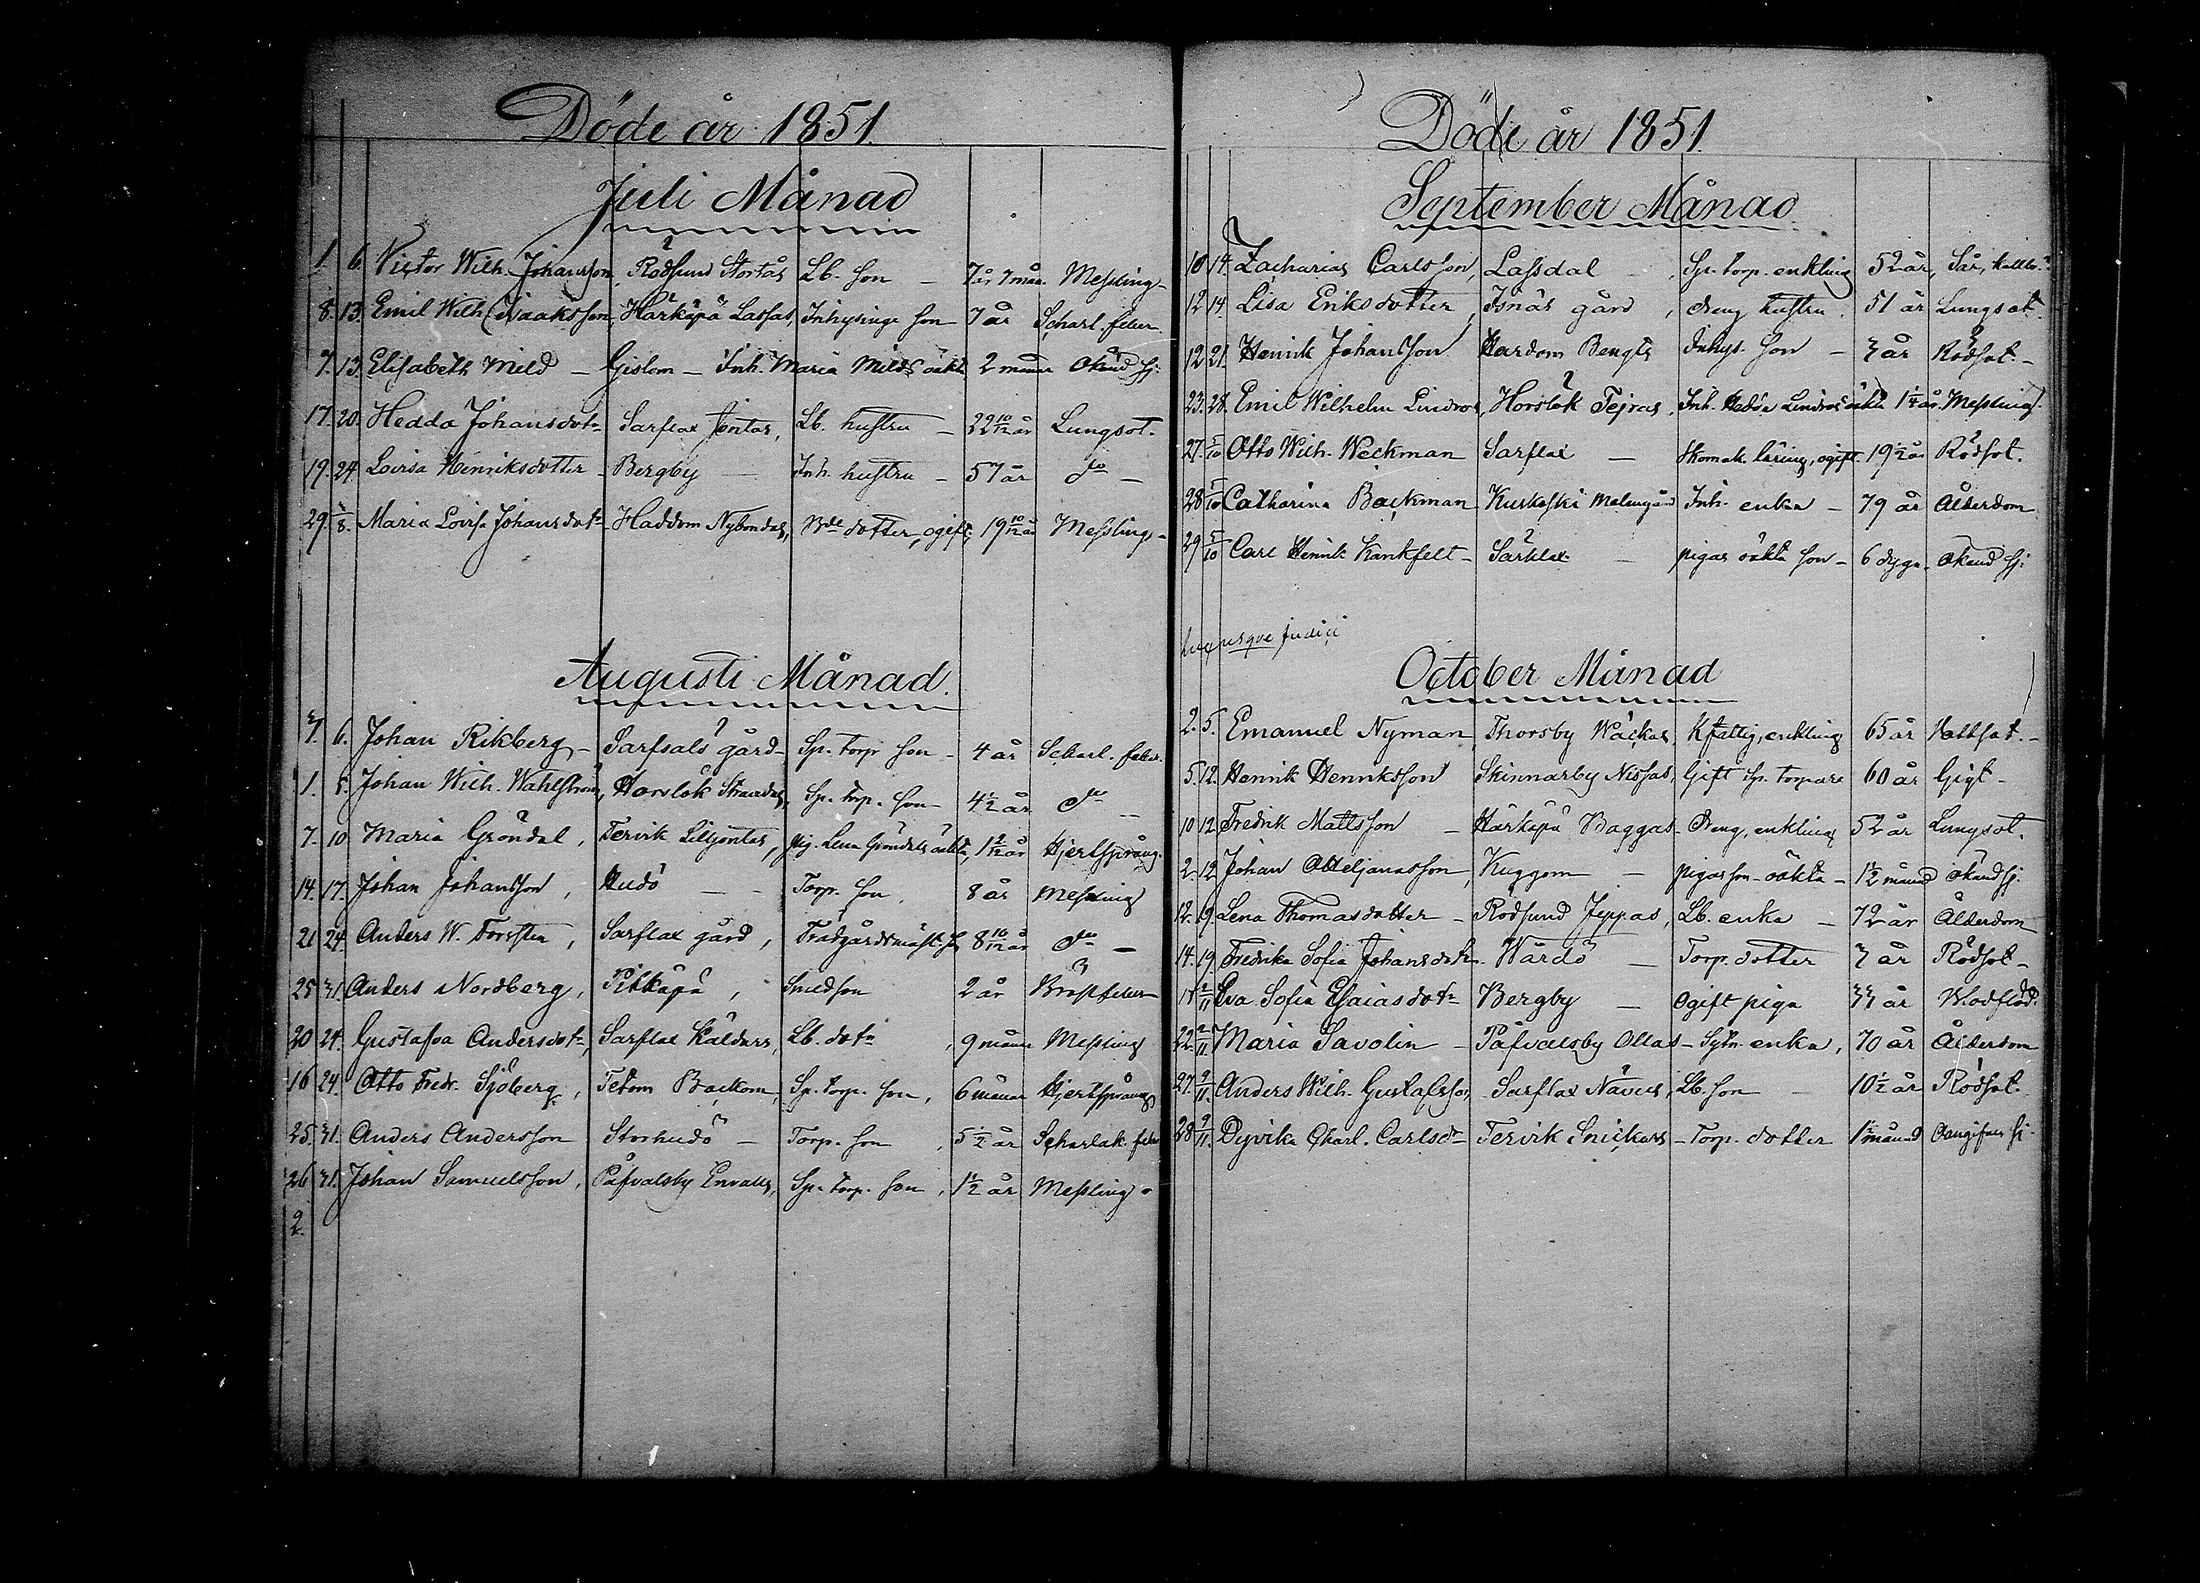 Döde år 1851.
Juli Månad
1. 6. Victor Wilh. Johansson, Rödsund Stortås Lb. son - 7 år 7 mån. Messling-
8. 13. Emil Wilh. Isaaksson, Härkäpä Lassas, Inhysings son 7 år Scharl. feber
7. 13. Elisabeth Mild - Gislom - Inh. Maria Milds oäkta 2 månar Okänd sj:
17. 20. Hedda Johansdotr Sarflax Jontas, Lb. hustru - 22 10/12 år Lungsot.
19. 24. Lovisa Henriksdotter - Bergby - Inh. hustru - 57 år do -
29. 3/8. Maria Lovisa Johansdotr Haddom Nybondas, Bde dotter, ogift, 19 10/12 år Messling-
Augusti Månad.
3. 6. Johan Rikberg - Sarfsals gård - Sp. torp. son - 4 år Scharl. feber.
1. 5. Johan Wilh. Wahlström, Horslök Strandas, Sp. torp. son - 4 1/2 år do -
7. 10. Maria Gröndal, Tervik Liljontas, pig. Lena Gröndals oäkta, 1 2/12 år Hjertsprång.
14. 17. Johan Johansson, Hudö - - Torp. son, 8 år Messling
21 24. Anders W. Forsten, Sarflax gård, Trädgårdsmäst. son 8 10/12 år do -
25 31. Anders Nordberg, Pitkäpä, Smedson 2 år Bröstfeber
20 24. Gustafva Andersdotr, Sarflax Käldars, Lb. dotr, 9 månar Messling
16 24. Otto Fredr. Sjöberg, Tetom Backom, Sp. torp. son, 6 månar Hjertsprång
25. 31. Anders Andersson Storhudö - Torp. son, 5 1/2 år Scharlak. feber
26 31. Johan Samuelsson, Påfvalsby Envalls, Sp. torp. son, 1 1/2 år Messling.
2.
Döde år 1851.
September Månad.
10 14. Zacharias Carlsson, Lassdal -, Sp. torp. enkling 52 år, Sår,
12 14. Lisa Eriksdotter, Isnäs gård, dreng hustru. 51 år Lungsot.
12 21. Henrik Johansson Hardom Bengts Inhys. son - 3 år Rödsot. -
23. 28. Emil Wilhelm Lindroos, Horslök Tejras, Inh. Hedda Lindroos oäkta 1 1/4 år. Messling.
27. 5/10 Otto Wilh. Weckman Sarflax - Skomak. läring, ogift. 19 1/2 år Rödsot.
28 5/10 Catharina Backman Kuskoski Malmgård Inh. enka - 79 år Ålderdom
29 5/10 Carl Henrik Kankfelt - Särklax - pigas oäkta son - 6 dygn. Okänd sj:
usque judici
October Månad
2. 5. Emanuel Nyman, Thorsby Wäckas, Kfattig, enkling 65 år Vattsot. -
5. 12. Henrik Henriksson Skinnarby Nissas, Gift Sp. torpare 60 år Gigt -
10 12. Fredrik Mattsson - Härkäpä Baggas - Dreng, enkling 52 år Lungsot.
2. 12 Johan Meljanasson, Kuggom - pigas son oäkta - 1 1/2 månad okänd sj.
12. 19. Lena Thomasdotter - Rödsund Jeppas, Lb. enka - 72 år Ålderdom
14. 19. Fredrika Sofia Johansdotr - Wårdö - Torp. dotter 3 år Rödsot -
2/11 Eva Sofia Esaiasdotr Bergby - Ogift piga 33 år Blodflöd.
22. 2/11. Maria Savolin - Påfvalsby Ollas - Sytn. enka, 70 år Ålderdom
27. 9/11. Anders Wilh. Gustafsson Sarflax Nävers, Lb. son - 10 1/2 år Rödsot.
28 9/11. Dyvika Charl. Carlsdr Tervik Snickars - Torp. dotter 1 1/2 månad Oangifven sj.